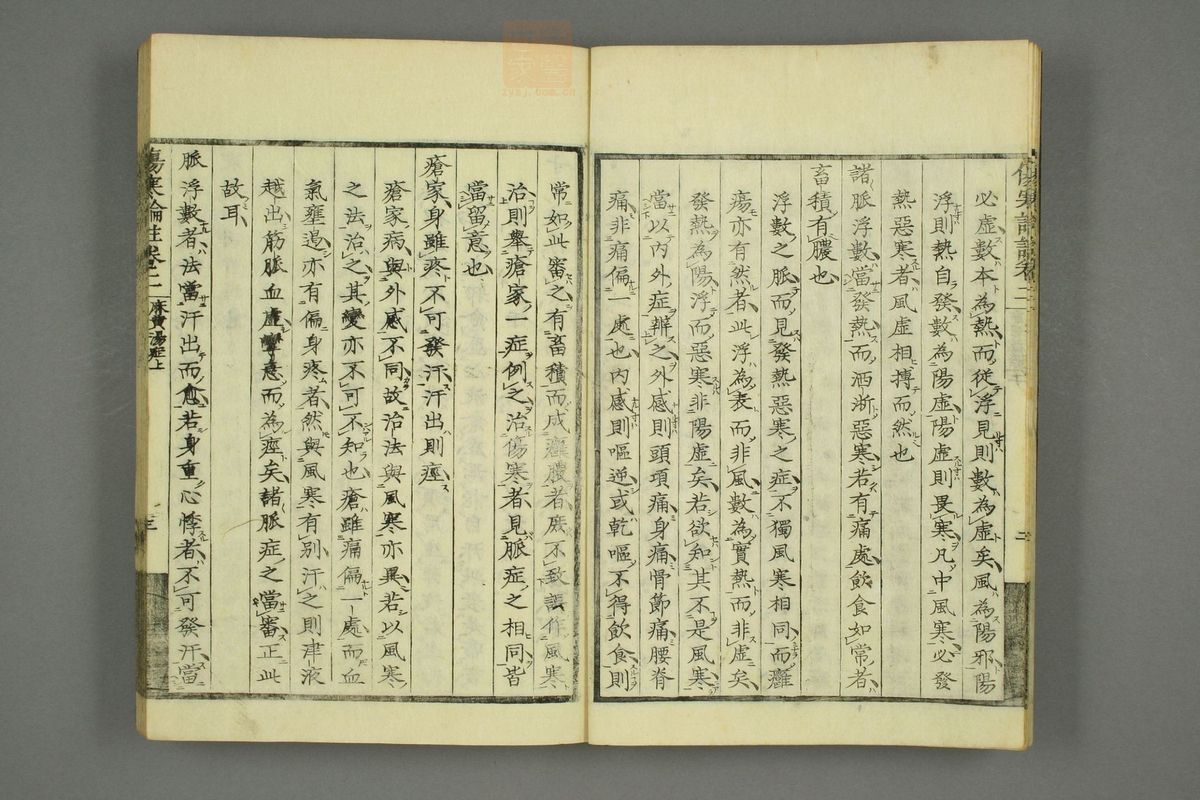 必虛數本為熱而從浮見則數為虛矣風為陽邪陽
浮則熱自發數為陽虛陽虛則畏寒凡中風寒必發
熱惡寒者風虛相搏而然也
諸脈浮數當發熱而洒淅惡寒若有痛處飲食如常者
畜積有膿也
浮數之脈而見發熱惡寒之症不獨風寒相同而癰
瘍亦有然者此浮為表而非風數為實熱而非虛矣
發熱為陽浮而惡寒非陽虛矣若欲知其不是風寒
當以內外症辨之外感則頭項痛身痛骨節痛腰脊
痛非痛偏一處也內感則嘔逆或乾嘔不得飲食則
常如此審之有畜積而成癰膿者庶不致誤作風寒
治則舉瘡家一症例之治傷寒者見脈症之相同皆
當留意也
瘡家身雖疼不可發汗汗出則痙
瘡家病與外感不同故治法與風寒亦異若以風寒
之法治之其變亦不可不知也瘡雖痛偏一處而血
氣壅遏亦有偏身疼者然與風寒有別汗之則津液
越出筋脈血虛攣急而為痙矣諸脈症之當審正此
故耳
脈浮數者法當汗出而愈若身重心悸者不可發汗當
傷寒論註卷二 麻黃湯症上 三